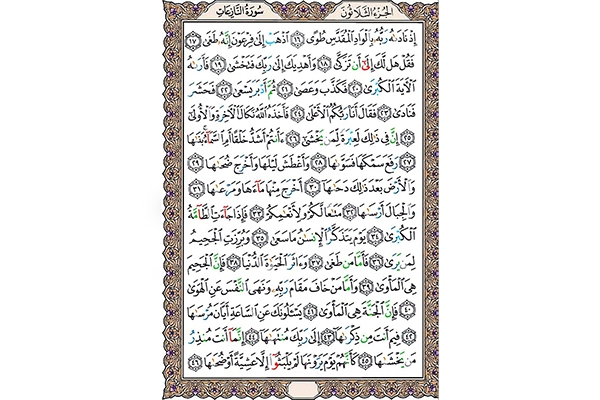 سُورَةُ النَّازِعَاتِ الجُزءُ الثَّلاثُونَ
إِذۡ نَادَىٰهُ رَبُّهُۥ بِٱلۡوَادِ ٱلۡمُقَدَّسِ طُوًى ١٦ ٱذۡهَبۡ إِلَىٰ فِرۡعَوۡنَ إِنَّهُۥ طَغَىٰ ١٧
فَقُلۡ هَل لَّكَ إِلَىٰٓ أَن تَزَكَّىٰ ١٨ وَأَهۡدِيَكَ إِلَىٰ رَبِّكَ فَتَخۡشَىٰ ١٩ فَأَرَىٰهُ
ٱلۡأٓيَةَ ٱلۡكُبۡرَىٰ ٢٠ فَكَذَّبَ وَعَصَىٰ ٢١ ثُمَّ أَدۡبَرَ يَسۡعَىٰ ٢٢ فَحَشَرَ
فَنَادَىٰ ٢٣ فَقَالَ أَنَا۠ رَبُّكُمُ ٱلۡأَعۡلَىٰ ٢٤ فَأَخَذَهُ ٱللَّهُ نَكَالَ ٱلۡأٓخِرَةِ وَٱلۡأُولَىٰٓ
٢٥ إِنَّ فِي ذَٰلِكَ لَعِبۡرَةٗ لِّمَن يَخۡشَىٰٓ ٢٦ ءَأَنتُمۡ أَشَدُّ خَلۡقًا أَمِ ٱلسَّمَآءُۚ بَنَىٰهَا
٢٧ رَفَعَ سَمۡكَهَا فَسَوَّىٰهَا ٢٨ وَأَغۡطَشَ لَيۡلَهَا وَأَخۡرَجَ ضُحَىٰهَا ٢٩
وَٱلۡأَرۡضَ بَعۡدَ ذَٰلِكَ دَحَىٰهَآ ٣٠ أَخۡرَجَ مِنۡهَا مَآءَهَا وَمَرۡعَىٰهَا ٣١
وَٱلۡجِبَالَ أَرۡسَىٰهَا ٣٢ مَتَٰعٗا لَّكُمۡ وَلِأَنۡعَٰمِكُمۡ ٣٣ فَإِذَا جَآءَتِ ٱلطَّآمَّةُ
ٱلۡكُبۡرَىٰ ٣٤ يَوۡمَ يَتَذَكَّرُ ٱلۡإِنسَٰنُ مَا سَعَىٰ ٣٥ وَبُرِّزَتِ ٱلۡجَحِيمُ
لِمَن يَرَىٰ ٣٦ فَأَمَّا مَن طَغَىٰ ٣٧ وَءَاثَرَ ٱلۡحَيَوٰةَ ٱلدُّنۡيَا ٣٨ فَإِنَّ ٱلۡجَحِيمَ
هِيَ ٱلۡمَأۡوَىٰ ٣٩ وَأَمَّا مَنۡ خَافَ مَقَامَ رَبِّهِۦ وَنَهَى ٱلنَّفۡسَ عَنِ ٱلۡهَوَىٰ
٤٠ فَإِنَّ ٱلۡجَنَّةَ هِيَ ٱلۡمَأۡوَىٰ ٤١ يَسۡـَٔلُونَكَ عَنِ ٱلسَّاعَةِ أَيَّانَ مُرۡسَىٰهَا
٤٢ فِيمَ أَنتَ مِن ذِكۡرَىٰهَآ ٤٣ إِلَىٰ رَبِّكَ مُنتَهَىٰهَآ ٤٤ إِنَّمَآ أَنتَ مُنذِرُ
مَن يَخۡشَىٰهَا ٤٥ كَأَنَّهُمۡ يَوۡمَ يَرَوۡنَهَا لَمۡ يَلۡبَثُوٓاْ إِلَّا عَشِيَّةً أَوۡ ضُحَىٰهَا ٤٦